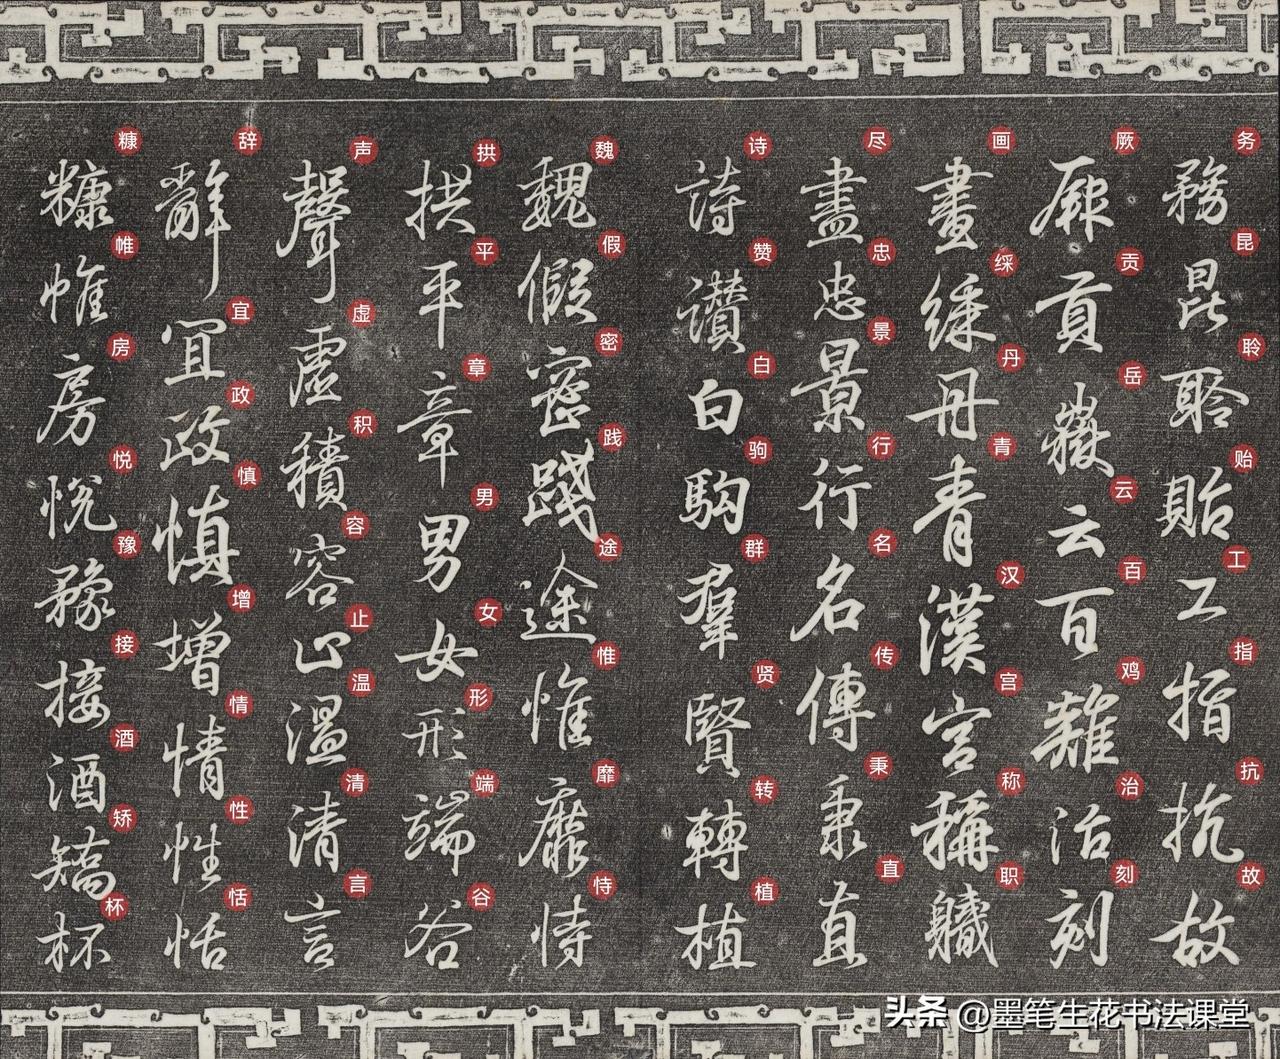 務昆聆貽工指抗故
厥貢嶽云百雞治刻
畫綵丹青漢宮稱職
盡忠景行名傳秉直
詩讃白駒羣賢轉植
魏假密踐途惟靡恃
拱平章男女形端谷
聲虛積容止溫清言
辭宜政慎增情性恬
糠帷房悅豫接酒矯杯
务昆聆贻工指抗故
厥贡岳云百鸡治刻
画綵丹青汉宫称职
尽忠景行名传秉直
诗赞白驹群贤转植
魏假密践途惟靡恃
拱平章男女形端谷
声虚积容止温清言
辞宜政慎增情性恬
糠帷房悦豫接酒矫杯
头条 @墨笔生花书法课堂